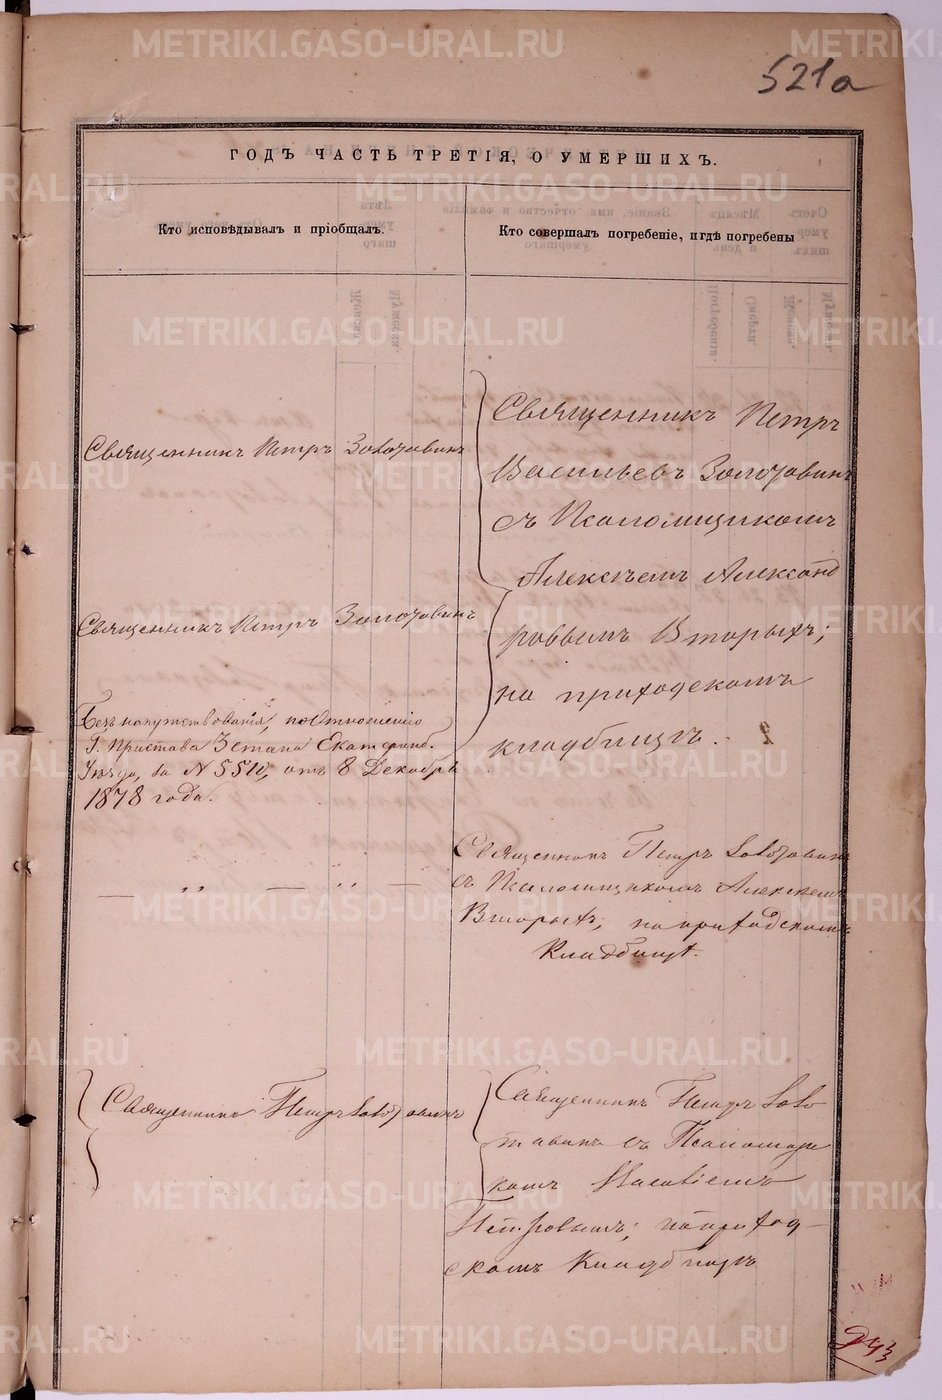 521а
ГОДЪ ЧАСТЬ ТРЕТІЯ, О УМЕРШИХЪ.
Кто исповѣдывалъ и пріобщалъ.
Кто совершалъ погребеніе, и гдѣ погребены
Священникъ Петръ Золотавинъ
Священникъ Петръ Золотавинъ
Безъ напутствованія, по Отношенію
Г. Пристава 3 стана Екатеринб.
Уѣзда, за N отъ 8 Декабря
1878 года.
— „ — „ —
Священникъ Петръ Золотавинъ
Священникъ Петръ
Васильевъ Золотавинъ
съ Псаломщикомъ
Алексѣемъ Александ
ровымъ Вторыхъ;
на приходскомъ
кладбищѣ.
Священникъ Петръ Золотавинъ
съ Псаломщикомъ Алексѣемъ
Вторыхъ, на приходскомъ
Кладбищѣ.
Священникъ Петръ Золо
тавинъ съ Псаломщи
комъ
Петровымъ; на приход-
скомъ Кладбищѣ
METRIKI.GASO-URAL.RU